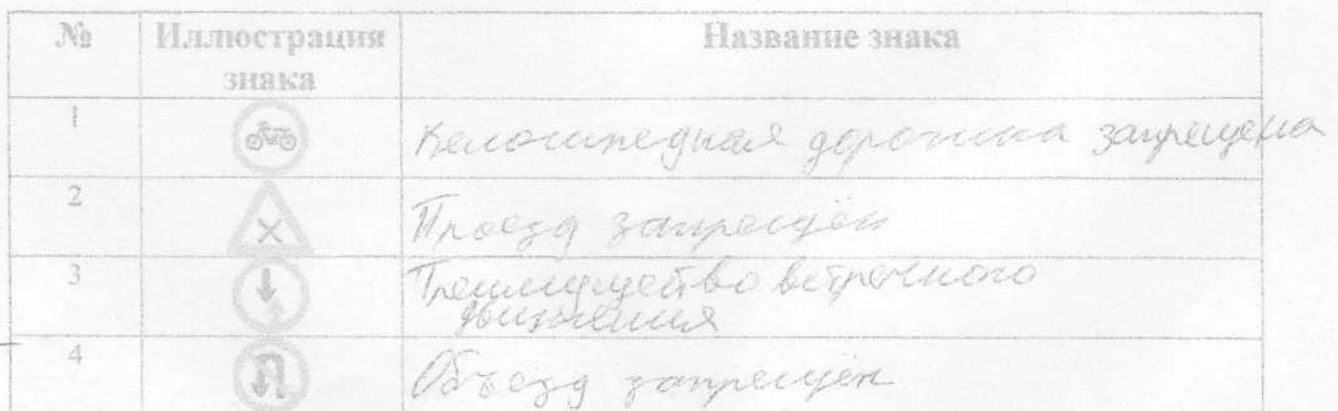 № Иллюстрация знака Название знака
1 Велосипедная дорожка запрещена
2 Проезд запрещён
3 Преимущество встречного
движения
4 Объезд запрещён